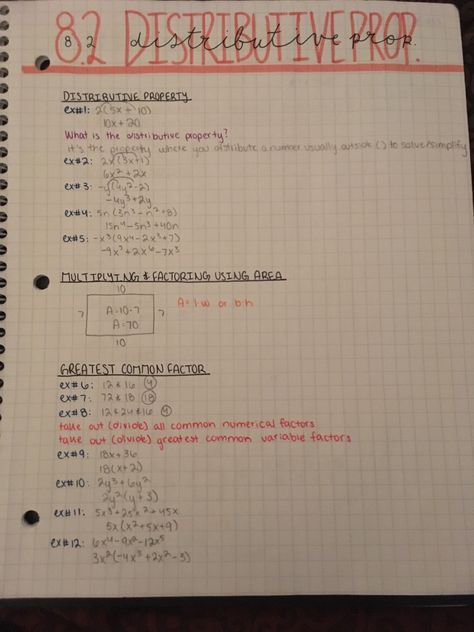 8.2 DISTRIBUTIVE PROP.
8.2 distributive prop.
DISTRIBUTIVE PROPERTY
ex#1: 2(5x + 10)
10x + 20
What is the distributive property?
it's the property where you distribute a number usually outside () to solve/simplify
ex#2: 2x(3x+1)
6x² + 2x
ex#3: -y(4y²-2)
-4y³ + 2y
ex#4: 5n(3n³ - n² + 8)
15n⁴ - 5n³ + 40n
ex#5: -x³(9x⁴ - 2x³ + 7)
-9x⁷ + 2x⁶ - 7x³
MULTIPLYING & FACTORING USING AREA
10
7 A=10·7 7 A= l·w or b·h
A=70
10
GREATEST COMMON FACTOR
ex#6: 12 & 16 4
ex#7: 72 & 18 18
ex#8: 12 & 24 & 16 4
take out (divide) all common numerical factors
take out (divide) greatest common variable factors
ex#9: 18x + 36
18(x+2)
ex#10: 2y³ + 6y²
2y²(y+3)
ex#11: 5x³ + 25x² + 45x
5x(x² + 5x + 9)
ex#12: 6x⁴ - 9x² - 12x⁵
3x²(-4x³ + 2x² - 3)